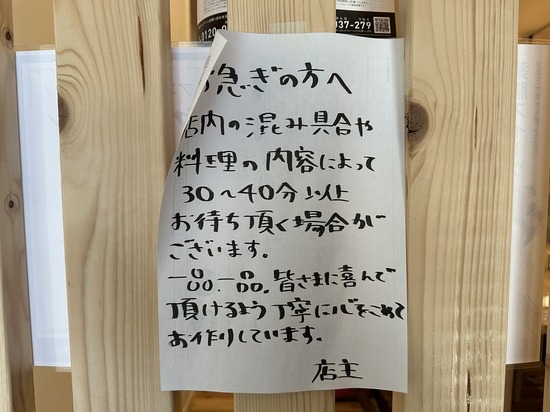 037-279
0120-
急ぎの方へ
店内の混み具合や
料理の内容によって
30~40分以上
お待ち頂く場合が
ございます。
一品、一品、皆さまに喜んで
頂けるよう丁寧に心をこめて
お作りしています。
店主